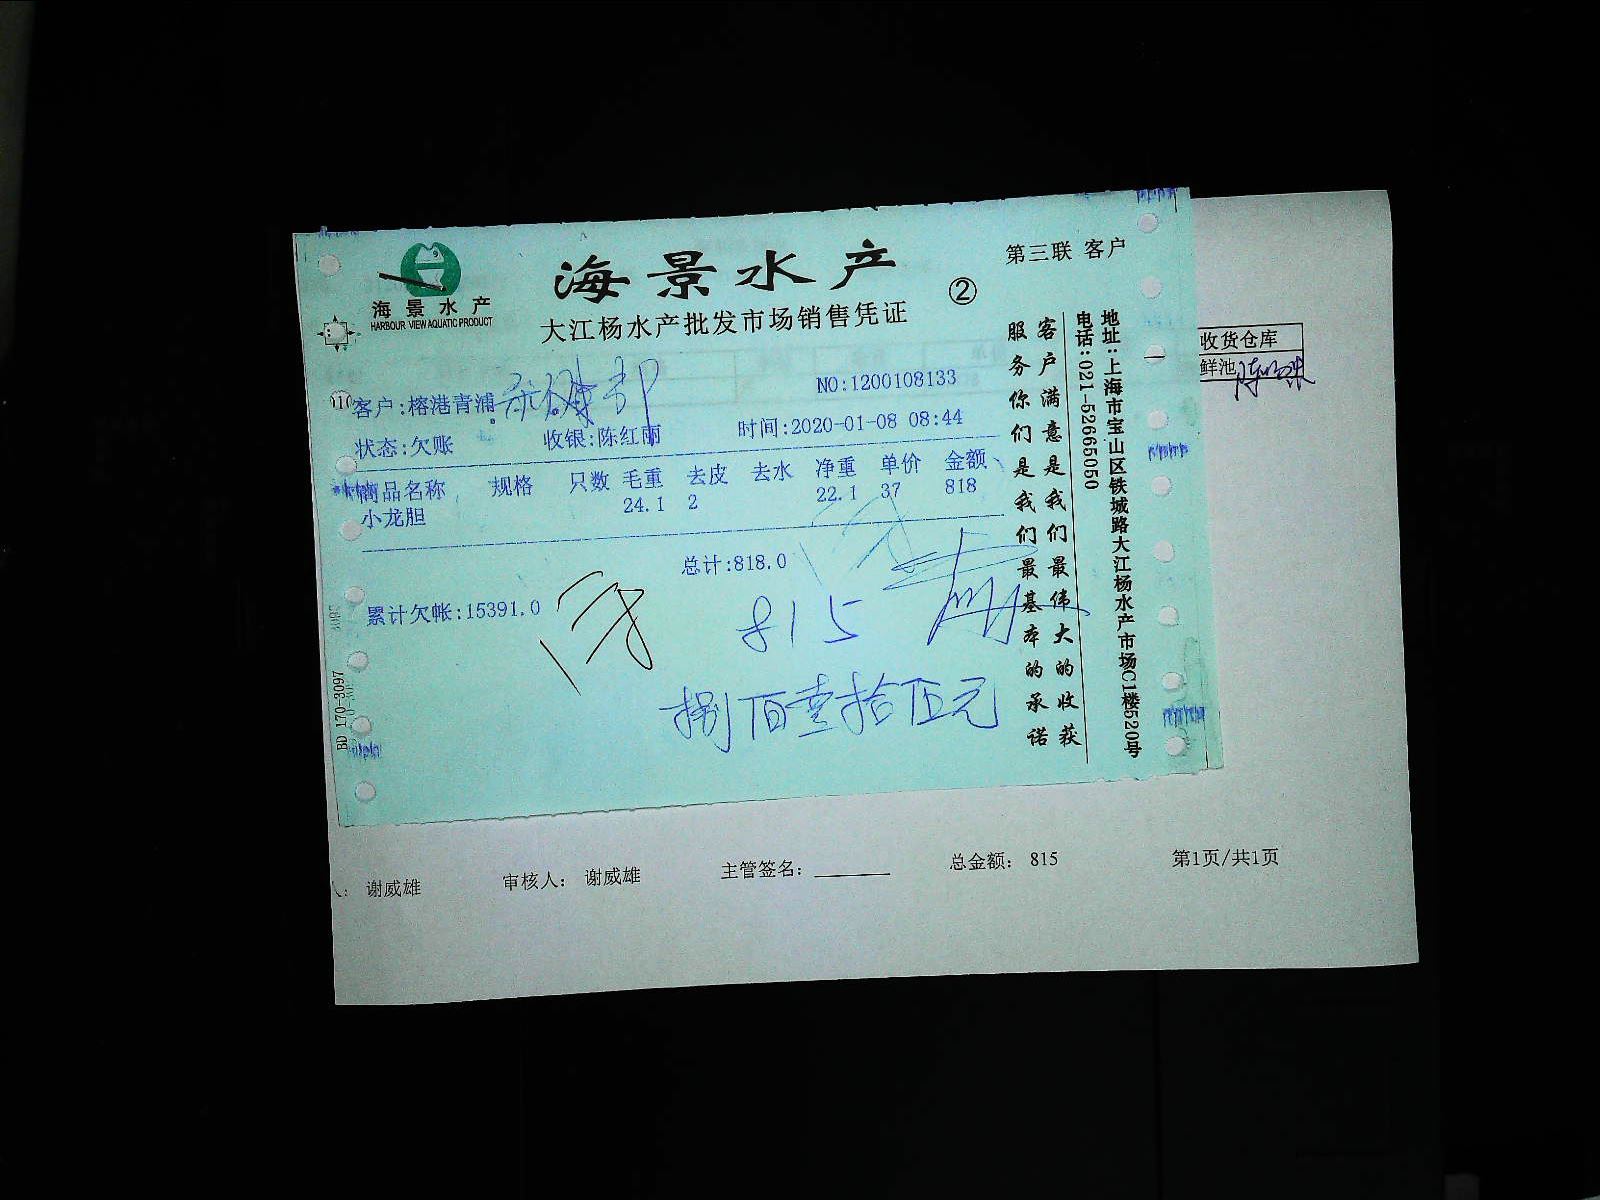 海景水产
HARBOUR VIEW AQUATIC PRODUCT
海景水产
大江杨水产批发市场销售凭证
②
第三联 客户
客户:榕港青浦
NO:1200108133
状态:欠账 收银:陈红丽 时间:2020-01-08 08:44
商品名称 规格 只数 毛重 去皮 去水 净重 单价 金额
小龙胆 24.1 2 22.1 37 818
总计:818.0
累计欠帐:15391.0
815
捌佰壹拾伍元
客户满意是我们最伟大的收获
服务你们是我们最基本的承诺
地址:上海市宝山区铁城路大江杨水产市场C1楼520号
电话:021-52665050
BD 170-3097
收货仓库
鲜池
谢威雄 审核人: 谢威雄 主管签名: 总金额: 815 第1页/共1页